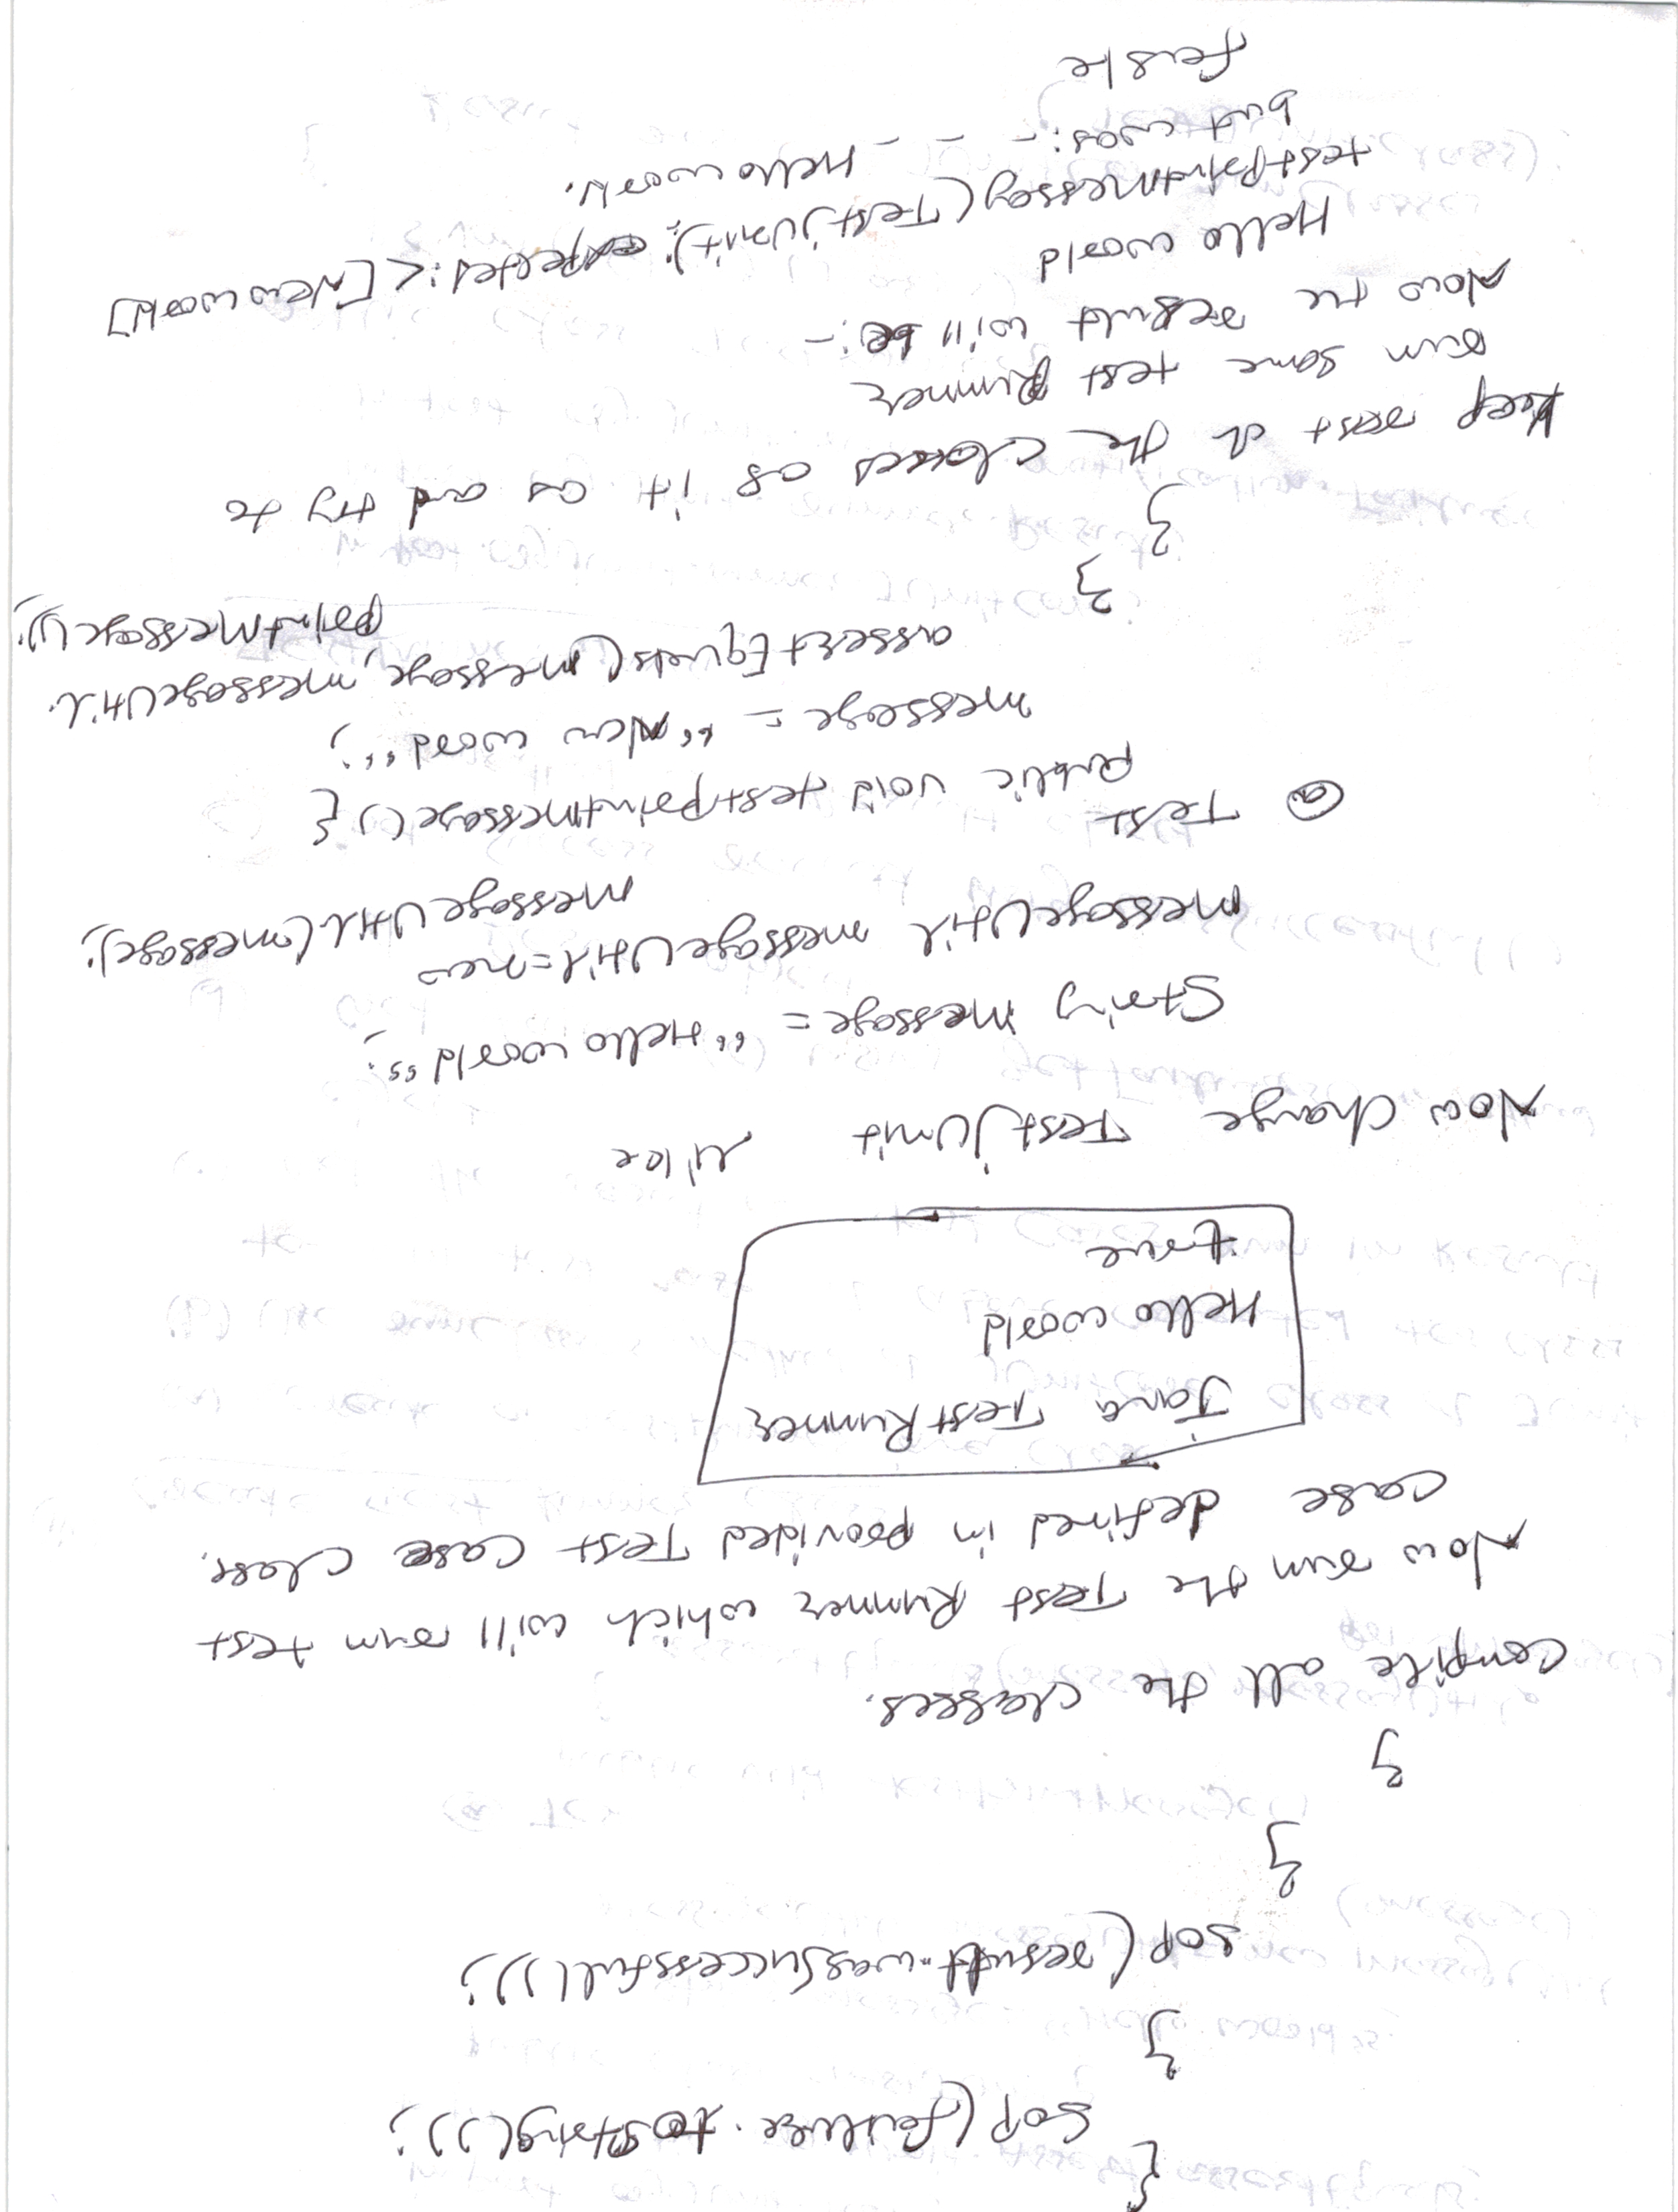 {
SOP (failure.toString());
}
SOP (result.wasSuccessful());
}
}
Compile all the classes.
Now run the Test Runner which will run test
case defined in provided Test Case Class.
Java TestRunner
Hello world
true
Now change TestJunit like
String message = "Hello world";
MessageUtil messageUtil = new
MessageUtil(message);
@ Test
Public void testprintmessage() {
message = "New world";
assertEquals(message, messageUtil.
printMessage());
}
}
Keep rest of the classes as it as and try to
run same test Runner
Now the result will be:-
Hello world
testprintmessag(TestjUnit): expected:<[New world]
but was:- - - Hello world.
false